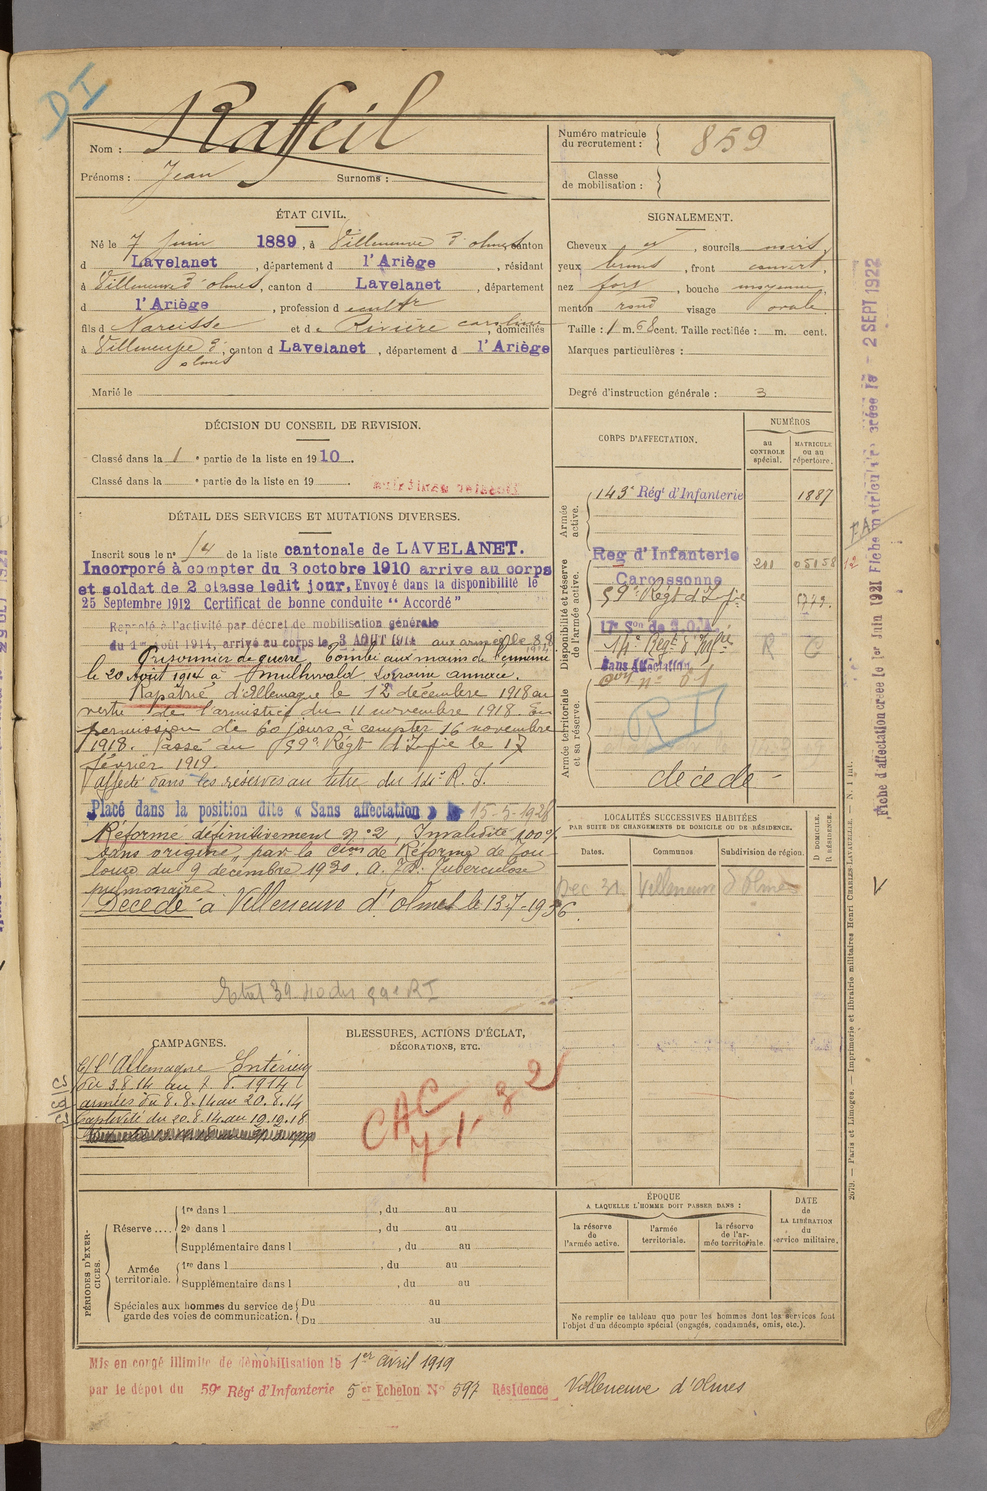 DI
Nom : Raffeil
Prénoms : Jean Surnoms :
Numéro matricule du recrutement : 859
Classe de mobilisation :
ÉTAT CIVIL.
Né le 7 juin 1889, à Villeneuve d'olmes, canton
d Lavelanet, département d l'Ariège, résidant
à Villeneuve d'olmes, canton d Lavelanet, département
d l'Ariège, profession de cultr
fils de Narcisse et de Rivière caroline, domiciliés
à Villeneuve d'olmes, canton d Lavelanet, département d l'Ariège
Marié le
SIGNALEMENT.
Cheveux et, sourcils noirs,
yeux bruns, front couvert,
nez fort, bouche moyenne,
menton rond visage ovale.
Taille : 1 m. 68 cent. Taille rectifiée : m. cent.
Marques particulières :
Degré d'instruction générale : 3
DÉCISION DU CONSEIL DE REVISION.
Classé dans la 1e partie de la liste en 1910.
Classé dans la e partie de la liste en 19
DÉTAIL DES SERVICES ET MUTATIONS DIVERSES.
Inscrit sous le n° 14 de la liste cantonale de LAVELANET.
Incorporé à compter du 3 octobre 1910 arrive au corps
et soldat de 2e classe ledit jour, Envoyé dans la disponibilité le
25 Septembre 1912 Certificat de bonne conduite "Accordé"
Rappelé à l'activité par décret de mobilisation générale
du 1er août 1914, arrivé au corps le 3 AOUT 1914 aux armées le 8.8
Prisonnier de guerre, tombé aux mains de l'ennemi
le 20 Août 1914 à Lorraine annexée.
Rapatrié d'Allemagne le 12 décembre 1918 au
vertu de l'armistice du 11 novembre 1918. En
permission de 60 jours à compter 16 novembre
1918. Passé au 59e Régt d'Infie le 17
février 1919.
affecté dans les réserves au titre du 14e R. I.
Placé dans la position dite « Sans affectation » le 15-5-1928
Réformé définitivement n° 2, Invalidité 100%
sans origine, par la Cion de Réforme de Tou-
louse du 9 décembre 1930. Tuberculose
pulmonaire
Décédé à Villeneuve d'Olmes le 13-7-1936.
Etat 39
CORPS D'AFFECTATION.
NUMÉROS
au CONTROLE spécial.
MATRICULE ou au répertoire.
Armée active.
143e Régt d'Infanterie 1887
Disponibilité et réserve de l'armée active.
Reg d'Infanterie 211 05158
Carcassonne
59e Régt d'Infie 1779.
14e Regt d'Infie R C
Sans Affectation
Armée territoriale et sa réserve.
RI
décédé
LOCALITÉS SUCCESSIVES HABITÉES
PAR SUITE DE CHANGEMENTS DE DOMICILE OU DE RÉSIDENCE.
Dates. Communes Subdivision de région. D DOMICILE. R RÉSIDENCE.
Dec 31 Villeneuve d'Olmes
CAMPAGNES.
C/ l'Allemagne Intérieur
du 3.8.14 au 7.8.1914
armées du 8.8.14 au 20.8.14
Captivité du 20.8.14 au 12.12.18
BLESSURES, ACTIONS D'ÉCLAT,
DÉCORATIONS, ETC.
CAC
7-1-32
PÉRIODES D'EXERCICES.
Réserve .... 1re dans l , du au
2e dans l , du au
Supplémentaire dans l , du au
Armée territoriale. 1re dans l , du au
Supplémentaire dans l , du au
Spéciales aux hommes du service de garde des voies de communication. Du au
Du au
ÉPOQUE
A LAQUELLE L'HOMME DOIT PASSER DANS :
la réserve de l'armée active.
l'armée territoriale.
la réserve de l'armée territoriale.
DATE de LA LIBÉRATION du service militaire.
Ne remplir ce tableau que pour les hommes dont les services font
l'objet d'un décompte spécial (engagés, condamnés, omis, etc.).
Mis en congé illimité de démobilisation le 1er avril 1919
par le dépôt du 59e Régt d'Infanterie 5er Echelon N° 597 Résidence Villeneuve d'Olmes
Fiche d'affectation créée le 1er Juin 1921 Fiche matriculaire créée le - 2 SEPT 1922
2079. — Paris et Limoges. — Imprimerie et librairie militaires Henri CHARLES-LAVAUZELLE.